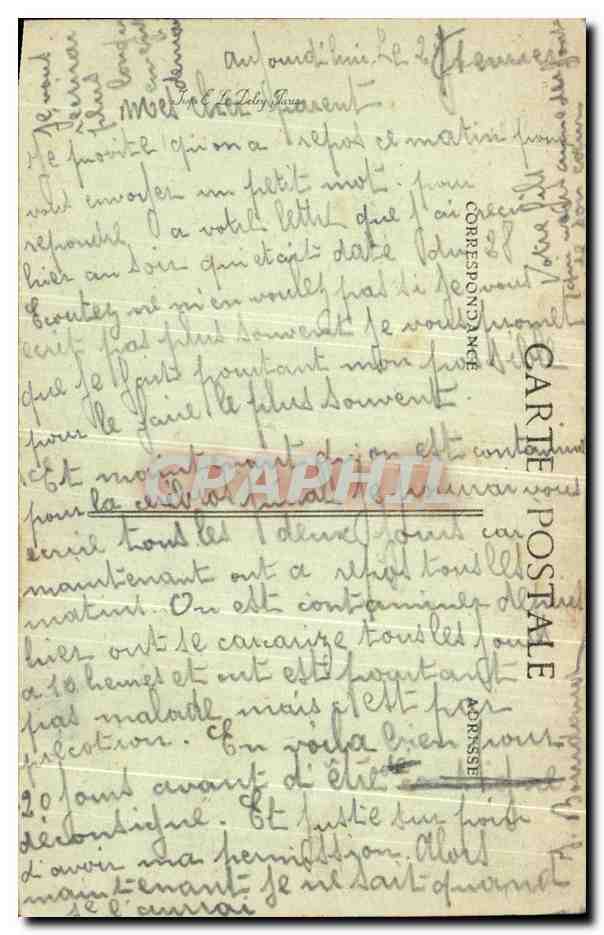 aujourdhui Le 2 fevrier
Imp. E. Le Deley, Paris
mes cher parent.
Je profite qu'on a repos ce matin pour
vous envoyer un petit mot. pour
repondre a votre lettre que j'ai reçu
hier au soir qui etait daté du 28
Ecoutez ne m'en voulez pas si je vous
ecrit pas plus souvent Je vous promet
que je fait pourtant mon possible
pour le faire le plus souvent.
Et maintenant on est contaminé
pour la Je pourrai vous
ecrire tous les deux jours car
maintenant ont a repos tous les
matins. On est contaminer depuis
hier ont se tous les jours
a 10 heures et ont est pourtant
pas malade mais c'est par
précotion. En voila bien pour
20 jours avant d'être
déconsigne. Et juste sur
d'avoir ma permission. Alors
maintenant je ne sait quand
je l'aurai
Je vous
écrirai
plus
demain
Votre fils
qui vous aime
de son cœur
CARTE POSTALE
CORRESPONDANCE
ADRESSE
CPAPHIL